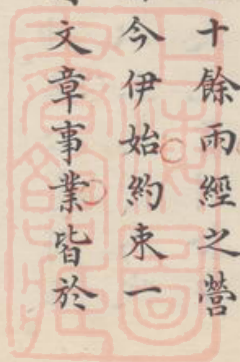 十餘雨經之營
今伊始約束一
文章事業皆於